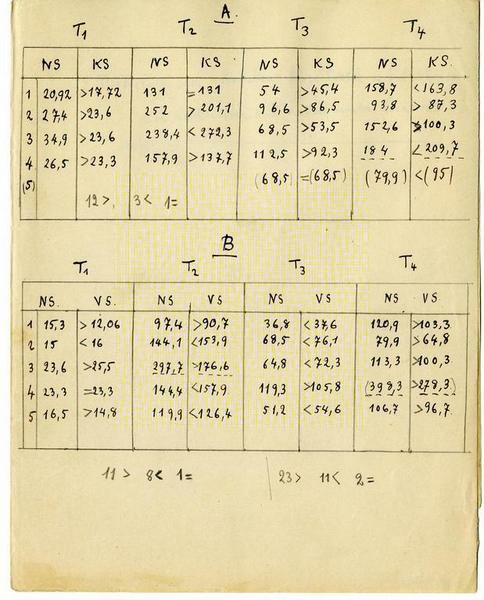 A.
T1 T2 T3 T4
NS KS NS KS NS KS NS KS.
1 20,92 >17,72 131 =131 54 >45,4 158,7 <163,8
2 27,4 >23,6 252 >201,1 96,6 >86,5 93,8 >87,3
3 34,9 >23,6 238,4 <272,3 68,5 >53,5 152,6 >100,3
4 26,5 >23,3 157,9 >137,7 112,5 >92,3 184 <209,7
(5) (68,5) =(68,5) (79,9) <(95)
12>. 3< 1=
B
T1 T2 T3 T4
NS. VS. NS VS NS VS NS VS.
1 15,3 >12,06 97,4 >90,7 36,8 <37,6 120,9 >103,3
2 15 <16 144,1 <153,9 68,5 <76,1 79,9 >64,8
3 23,6 >25,5 297,7 >176,6 64,8 <72,3 113,3 >100,3
4 23,3 =23,3 144,4 <157,9 119,3 >105,8 (398,3 >278,3)
5 16,5 >14,8 119,9 <126,4 51,2 <54,6 106,7 >96,7
11> 8< 1= 23> 11< 2=